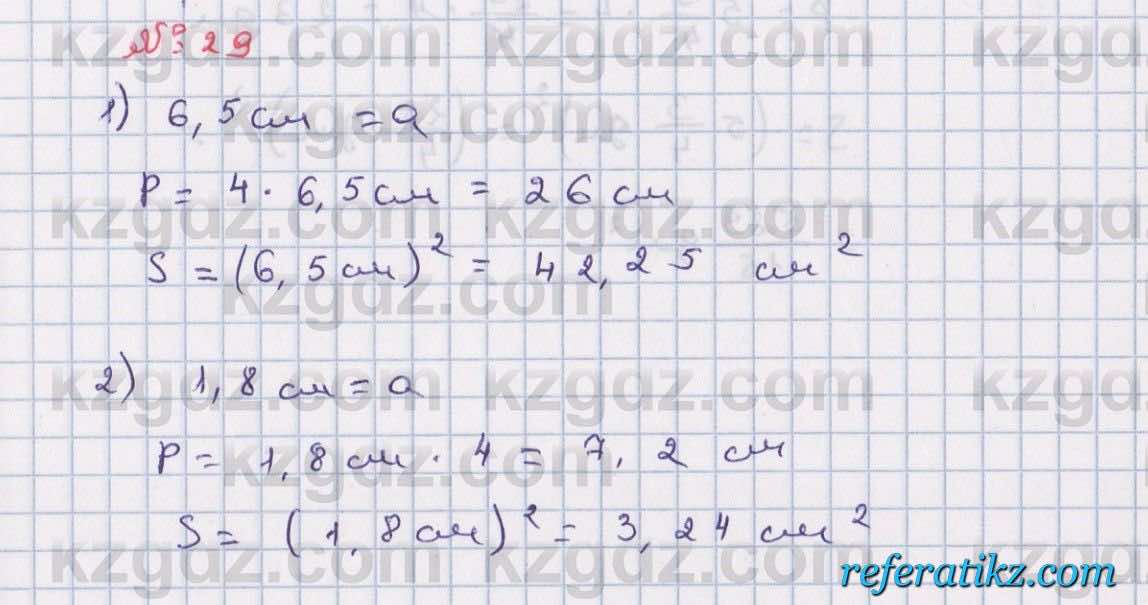 № 29
1) 6,5 см = a
P = 4 · 6,5 см = 26 см
S = (6,5 см)² = 42,25 см²
2) 1,8 см = a
P = 1,8 см · 4 = 7,2 см
S = (1,8 см)² = 3,24 см²
kzgdz.com
referatikz.com